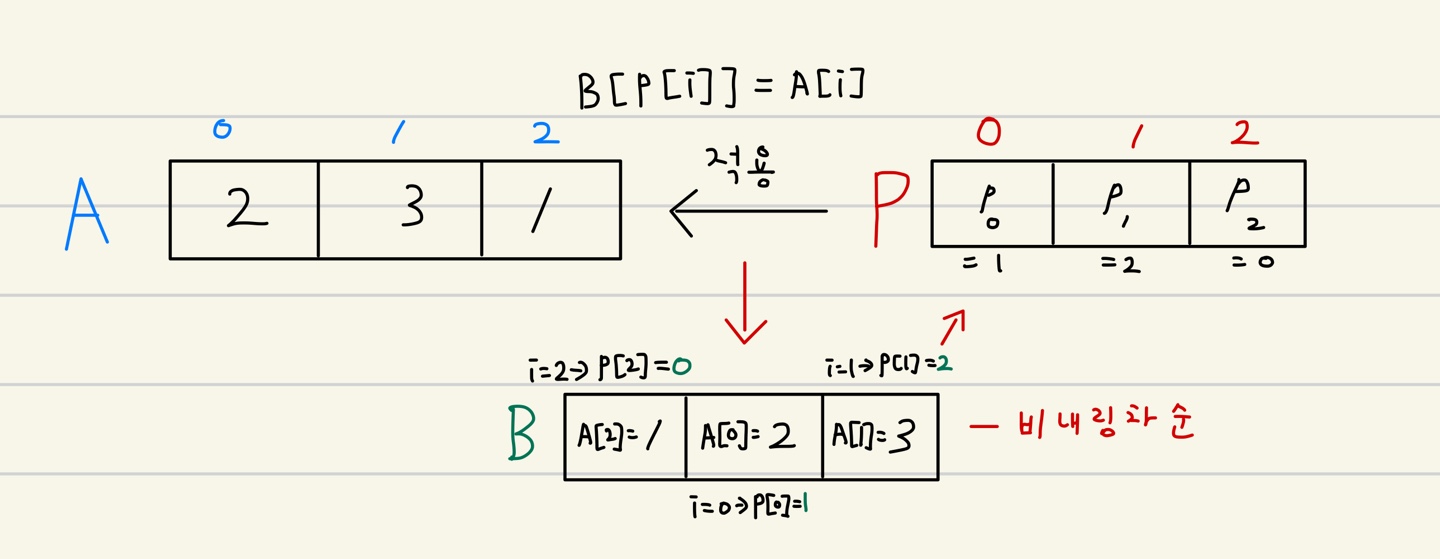 B[P[i]] = A[i]
0 1 2
적용
0 1 2
A 2 3 1
P P0 P1 P2
= 1 = 2 = 0
i=2→P[2]=0
i=1→P[1]=2
B A[2]=1 A[0]=2 A[1]=3
— 비내림차순
i=0→P[0]=1